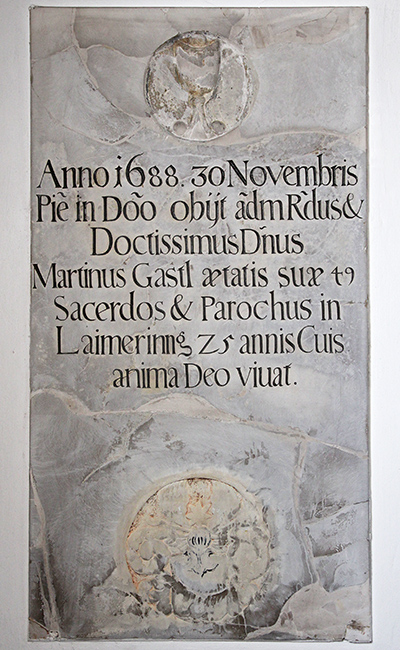 Anno 1688. 30 Novembris
Piẽ in Dõo obijt ãdm R̃dus &
Doctissimus Dñus
Martinus Gastl ætatis suæ 49
Sacerdos & Parochus in
Laimerinng 25 annis Cuis
anima Deo viuat.